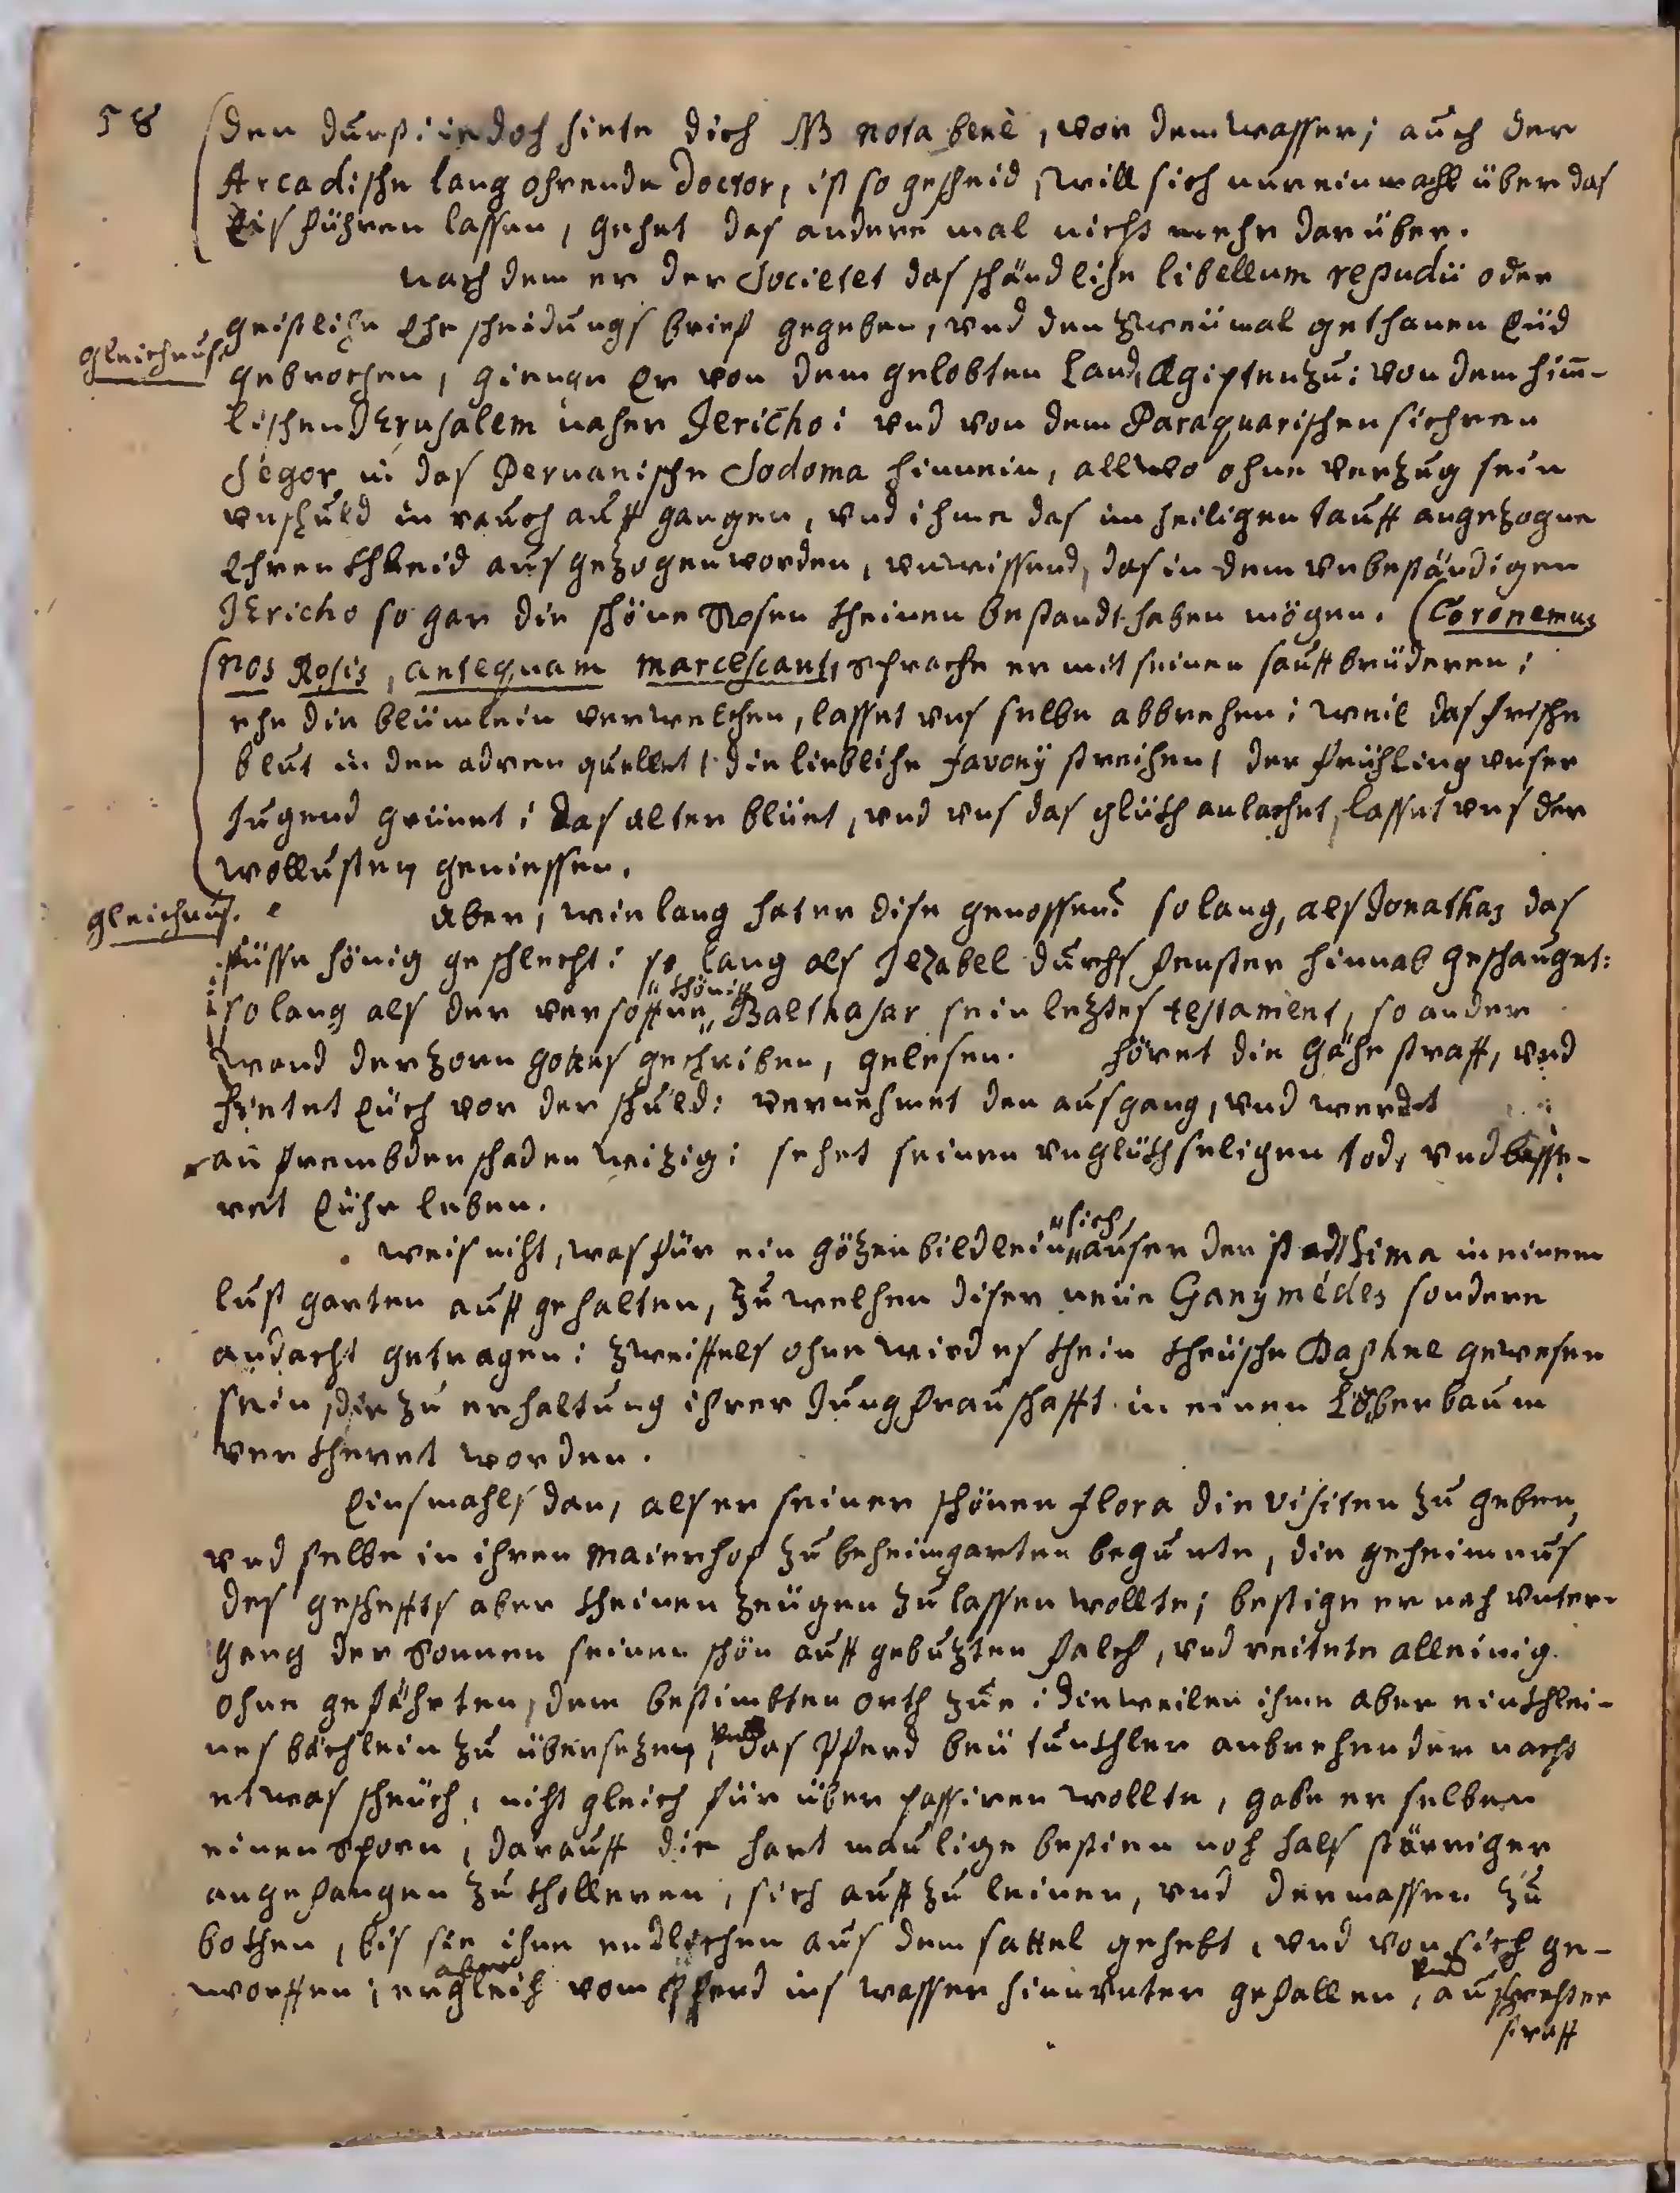 58
den durst: iedoch hiete dich NB nota bene, vor dem wasser; auch der
Arcadische lang ohrende Doctor, ist so gescheid, will sich nur ein mahl über das
Eis führen lassen, gehet das andere mal nicht mehr darüber.
nach dem er der Societet das schändliche libellum repudii oder
geistliche Ehe scheidungs brief gegeben, vnd den zweümal gethanen Eüd
gleichnus
gebrochen, gienge Er von dem gelobten Land, Ægipten zu: von dem him̄-
lischen JErusalem naher Jericho: vnd von dem Paraquarischen sichren
Segor in das Peruanische Sodoma hinnein, allwo ohne verzug sein
vnschuld in rauch auff gangen, vnd ihme das im heiligen tauff angezogne
Ehren khleid ausgezogen worden, vnwissend, das in dem vnbeständigen
JEricho so gar die schöne Rosen kheinen bestandt haben mögen. (Coronemus
nos Rosis, antequam marcescant, sprache er mit seinen sauffbrüderen:
ehe die blümlein verwelckhen, lasset vns selbe abbrechen: weil das frische
blut in den adren quellet, die liebliche Favonÿ streichen, der frühling vnser
Jugend grünet: das alter blüet, vnd vns das glückh anlachet, lasset vns der
wollusten geniessen.
gleichnus.
Aber, wie lang hat er dise genossen? so lang, als Jonathas das
süsse hönig geschleckt: so lang als Jezabel durchs fenster hinnab geschauget:
so lang als der versoffne „khönig„ Balthasar sein leztes testament, so an der
wand der zorn gottes geschriben, gelesen. höret die gähe straff, vnd
hietet Eüch vor der schuld: vernehmet den ausgang, vnd werdet
an frembden schaden weizig: sehet seinen vnglückhseligen tod, vnd besse-
ret Eühr leben.
weis nicht, was für ein gözenbildlein „sich„ ausser der stadt Lima in einem
lust garten auff gehalten, zu welchen diser neüe Ganymédes sondere
andacht getragen: zweiffels ohne wird es khein kheüsche Daphne gewesen
sein, die zu erhaltung ihrer Jungfrauschafft in einen Lörberbaum
verkheret worden.
Einsmahls dan, als er seiner schönen Flora die visiten zu geben,
vnd selbe in ihren Maierhof zu beheimgarten begunte, die geheimnus
des gescheffts aber kheinen zeügen zu lassen wollte; bestige er nach vnter-
gang der Sonnen seinen schön auff gebuzten falch, vnd reitete alleinig
ohne gefährten, dem bestimbten orth zue: dieweilen ihme aber ein khlei-
nes bächlein zu übersezen, vnd das Pferd beü tunckhler anbrechender nacht
etwas scheüch, nicht gleich für über passiren wollte, gabe er selben
einen Sporn, darauff die hart maulige bestien noch hals störriger
angefangen zu kholleren, sich auff zu leinen, vnd dermassen zu
bokhen, bis sie ihne endlichen aus dem sattel gehebt, vnd von sich ge-
worffen; er aber gleich vom Pferd ins wasser hinnunter gefallen, vnd aus
straff